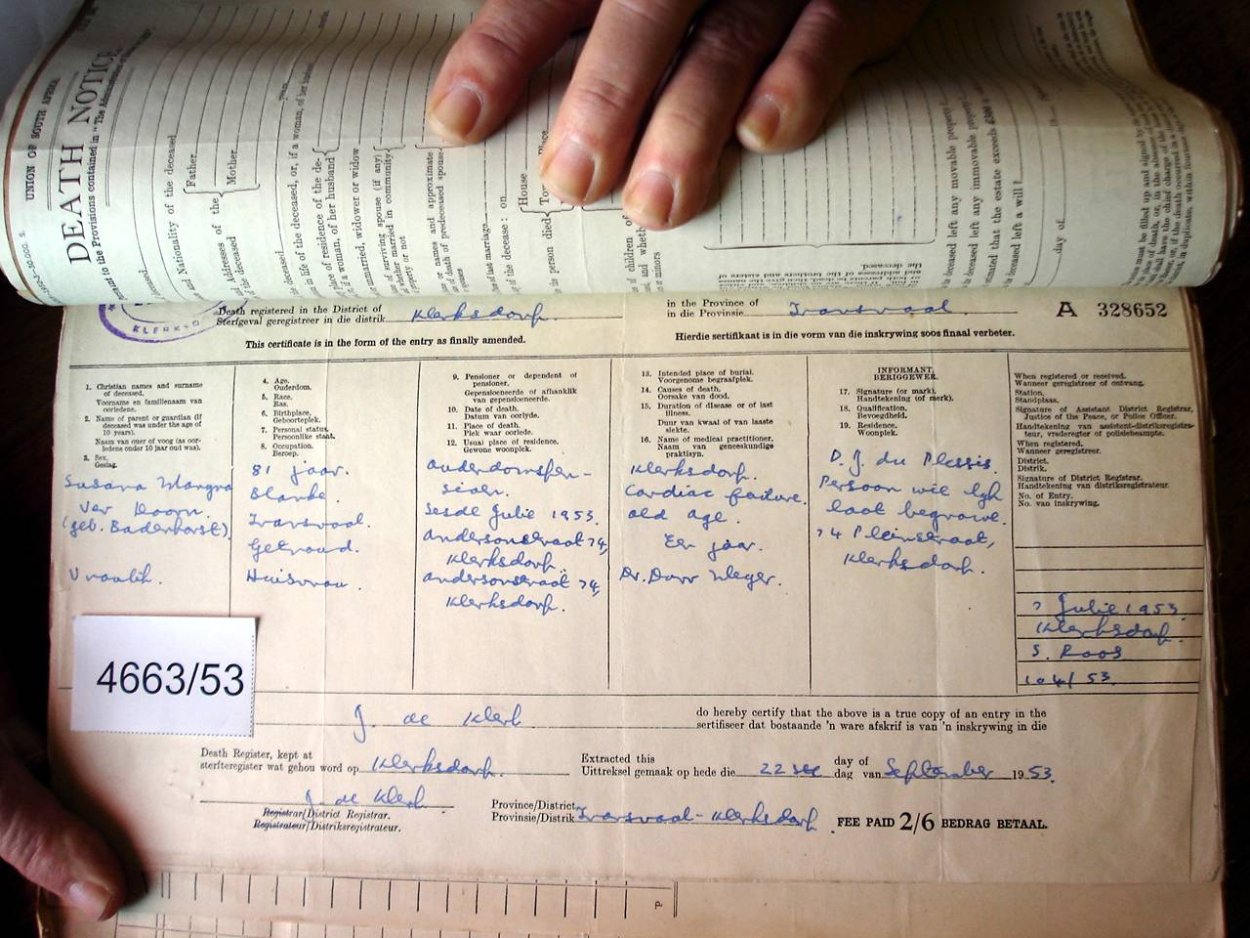 UNION OF SOUTH AFRICA
DEATH NOTICE
to the Provisions contained in "The
Nationality of the deceased
Father
Mother
Addresses of the
deceased
deceased
in life of the deceased, or, if a woman, of her
place of residence of the de-
if a woman, of her husband
unmarried, widower or widow
of surviving spouse (if any)
whether married in community
property or not
or names and approximate
of death of predeceased spouse
of last marriage
of the decease: on
House
the person died
Place
children of
minors
deceased left any movable
deceased left any immovable
that the estate exceeds
deceased left a will?
day of
KLERKSD
Death registered in the District of
Sterfgeval geregistreer in die distrik
Klerksdorp.
in the Province of
in die Provinsie
Transvaal
A 328652
This certificate is in the form of the entry as finally amended.
Hierdie sertifikaat is in die vorm van die inskrywing soos finaal verbeter.
1. Christian names and surname of deceased.
Voorname en familienaam van oorledene.
2. Name of parent or guardian (if deceased was under the age of 10 years).
Naam van ouer of voog (as oorledene onder 10 jaar oud was).
3. Sex.
Geslag.
Susara
(geb. Badenhorst)
Vroulik.
4. Age.
Ouderdom.
5. Race.
Ras.
6. Birthplace.
Geboorteplek.
7. Personal status.
Persoonlike staat.
8. Occupation.
Beroep.
81 jaar.
Blanke.
Transvaal.
Getroud.
Huisvrou.
9. Pensioner or dependent of pensioner.
Gepensioeneerde of afhanklik van gepensioeneerde.
10. Date of death.
Datum van oorlyde.
11. Place of death.
Plek waar oorlede.
12. Usual place of residence.
Gewone woonplek.
Ouderdomspen-
sioen.
Sesde Julie 1953.
Andersonstraat 74,
Klerksdorp.
Andersonstraat 74,
Klerksdorp.
13. Intended place of burial.
Voorgenome begraafplek.
14. Causes of death.
Oorsake van dood.
15. Duration of disease or of last illness.
Duur van kwaal of van laaste siekte.
16. Name of medical practitioner.
Naam van geneeskundige praktisyn.
Klerksdorp.
Cardiac failure.
old age.
Een jaar.
Dr.
INFORMANT.
BERIGGEWER.
17. Signature (or mark).
Handtekening (of merk).
18. Qualification.
Bevoegdheid.
19. Residence.
Woonplek.
D. J. du Plessis.
Persoon wie lyk
laat begrawe.
74 Pleinstraat,
Klerksdorp.
When registered or received.
Wanneer geregistreer of ontvang.
Station.
Standplaas.
Signature of Assistant District Registrar, Justice of the Peace, or Police Officer.
Handtekening van assistent-distriksregistrateur, vrederegter of polisiebeampte.
When registered.
Wanneer geregistreer.
District.
Distrik.
Signature of District Registrar.
Handtekening van distriksregistrateur.
No. of Entry.
No. van inskrywing.
7 Julie 1953.
Klerksdorp.
S. Roos
104/53.
4663/53
J. de Klerk
do hereby certify that the above is a true copy of an entry in the
sertifiseer dat bostaande 'n ware afskrif is van 'n inskrywing in die
Death Register, kept at
sterfteregister wat gehou word op
Klerksdorp.
Extracted this
Uittreksel gemaak op hede die
22ste
day of
dag van
September 1953.
J. de Klerk
Registrar/District Registrar.
Registrateur/Distriksregistrateur.
Province/District
Provinsie/Distrik
Transvaal - Klerksdorp
FEE PAID 2/6 BEDRAG BETAAL.